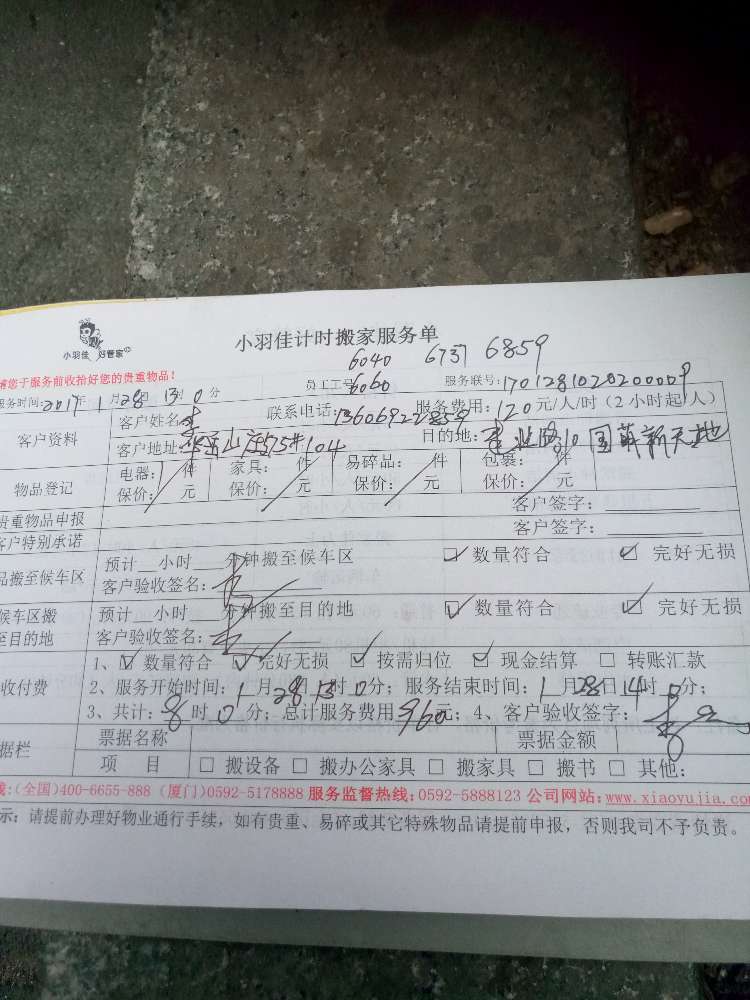 小羽佳 好管家
小羽佳计时搬家服务单
6040 6737 6859
请您于服务前收拾好您的贵重物品！
员工工号 6060 服务联号：170128102020009
服务时间：2017年1月28日13时0分
客户资料 客户姓名：李 联系电话：13606922859 服务费用：120元/人/时（2小时起/人）
客户地址：山庄75#104 目的地：建业路10 国新天地
物品登记 电器： 件 家具： 件 易碎品： 件 包裹： 件
保价： 元 保价： 元 保价： 元 保价： 元
贵重物品申报 客户签字：
客户特别承诺 客户签字：
品搬至候车区 预计 小时 分钟搬至候车区 ☑ 数量符合 ☑ 完好无损
客户验收签名：李
候车区搬至目的地 预计 小时 分钟搬至目的地 ☑ 数量符合 ☑ 完好无损
客户验收签名：李
收付费 1、☑ 数量符合 ☑ 完好无损 ☑ 按需归位 ☑ 现金结算 □ 转账汇款
2、服务开始时间：1月28日13时0分；服务结束时间：1月28日14时0分；
3、共计：8时0分；总计服务费用960元；4、客户验收签字：李
据栏 票据名称 票据金额
项 目 □ 搬设备 □ 搬办公家具 □ 搬家具 □ 搬书 □ 其他：
线：(全国)400-6655-888 (厦门)0592-5178888 服务监督热线：0592-5888123 公司网站：www.xiaoyujia.com
示：请提前办理好物业通行手续，如有贵重、易碎或其它特殊物品请提前申报，否则我司不予负责。